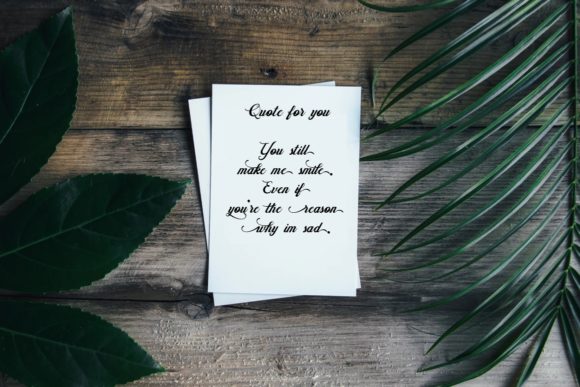 Quote for you
You still
make me smile.
Even if
you're the reason
why im sad.